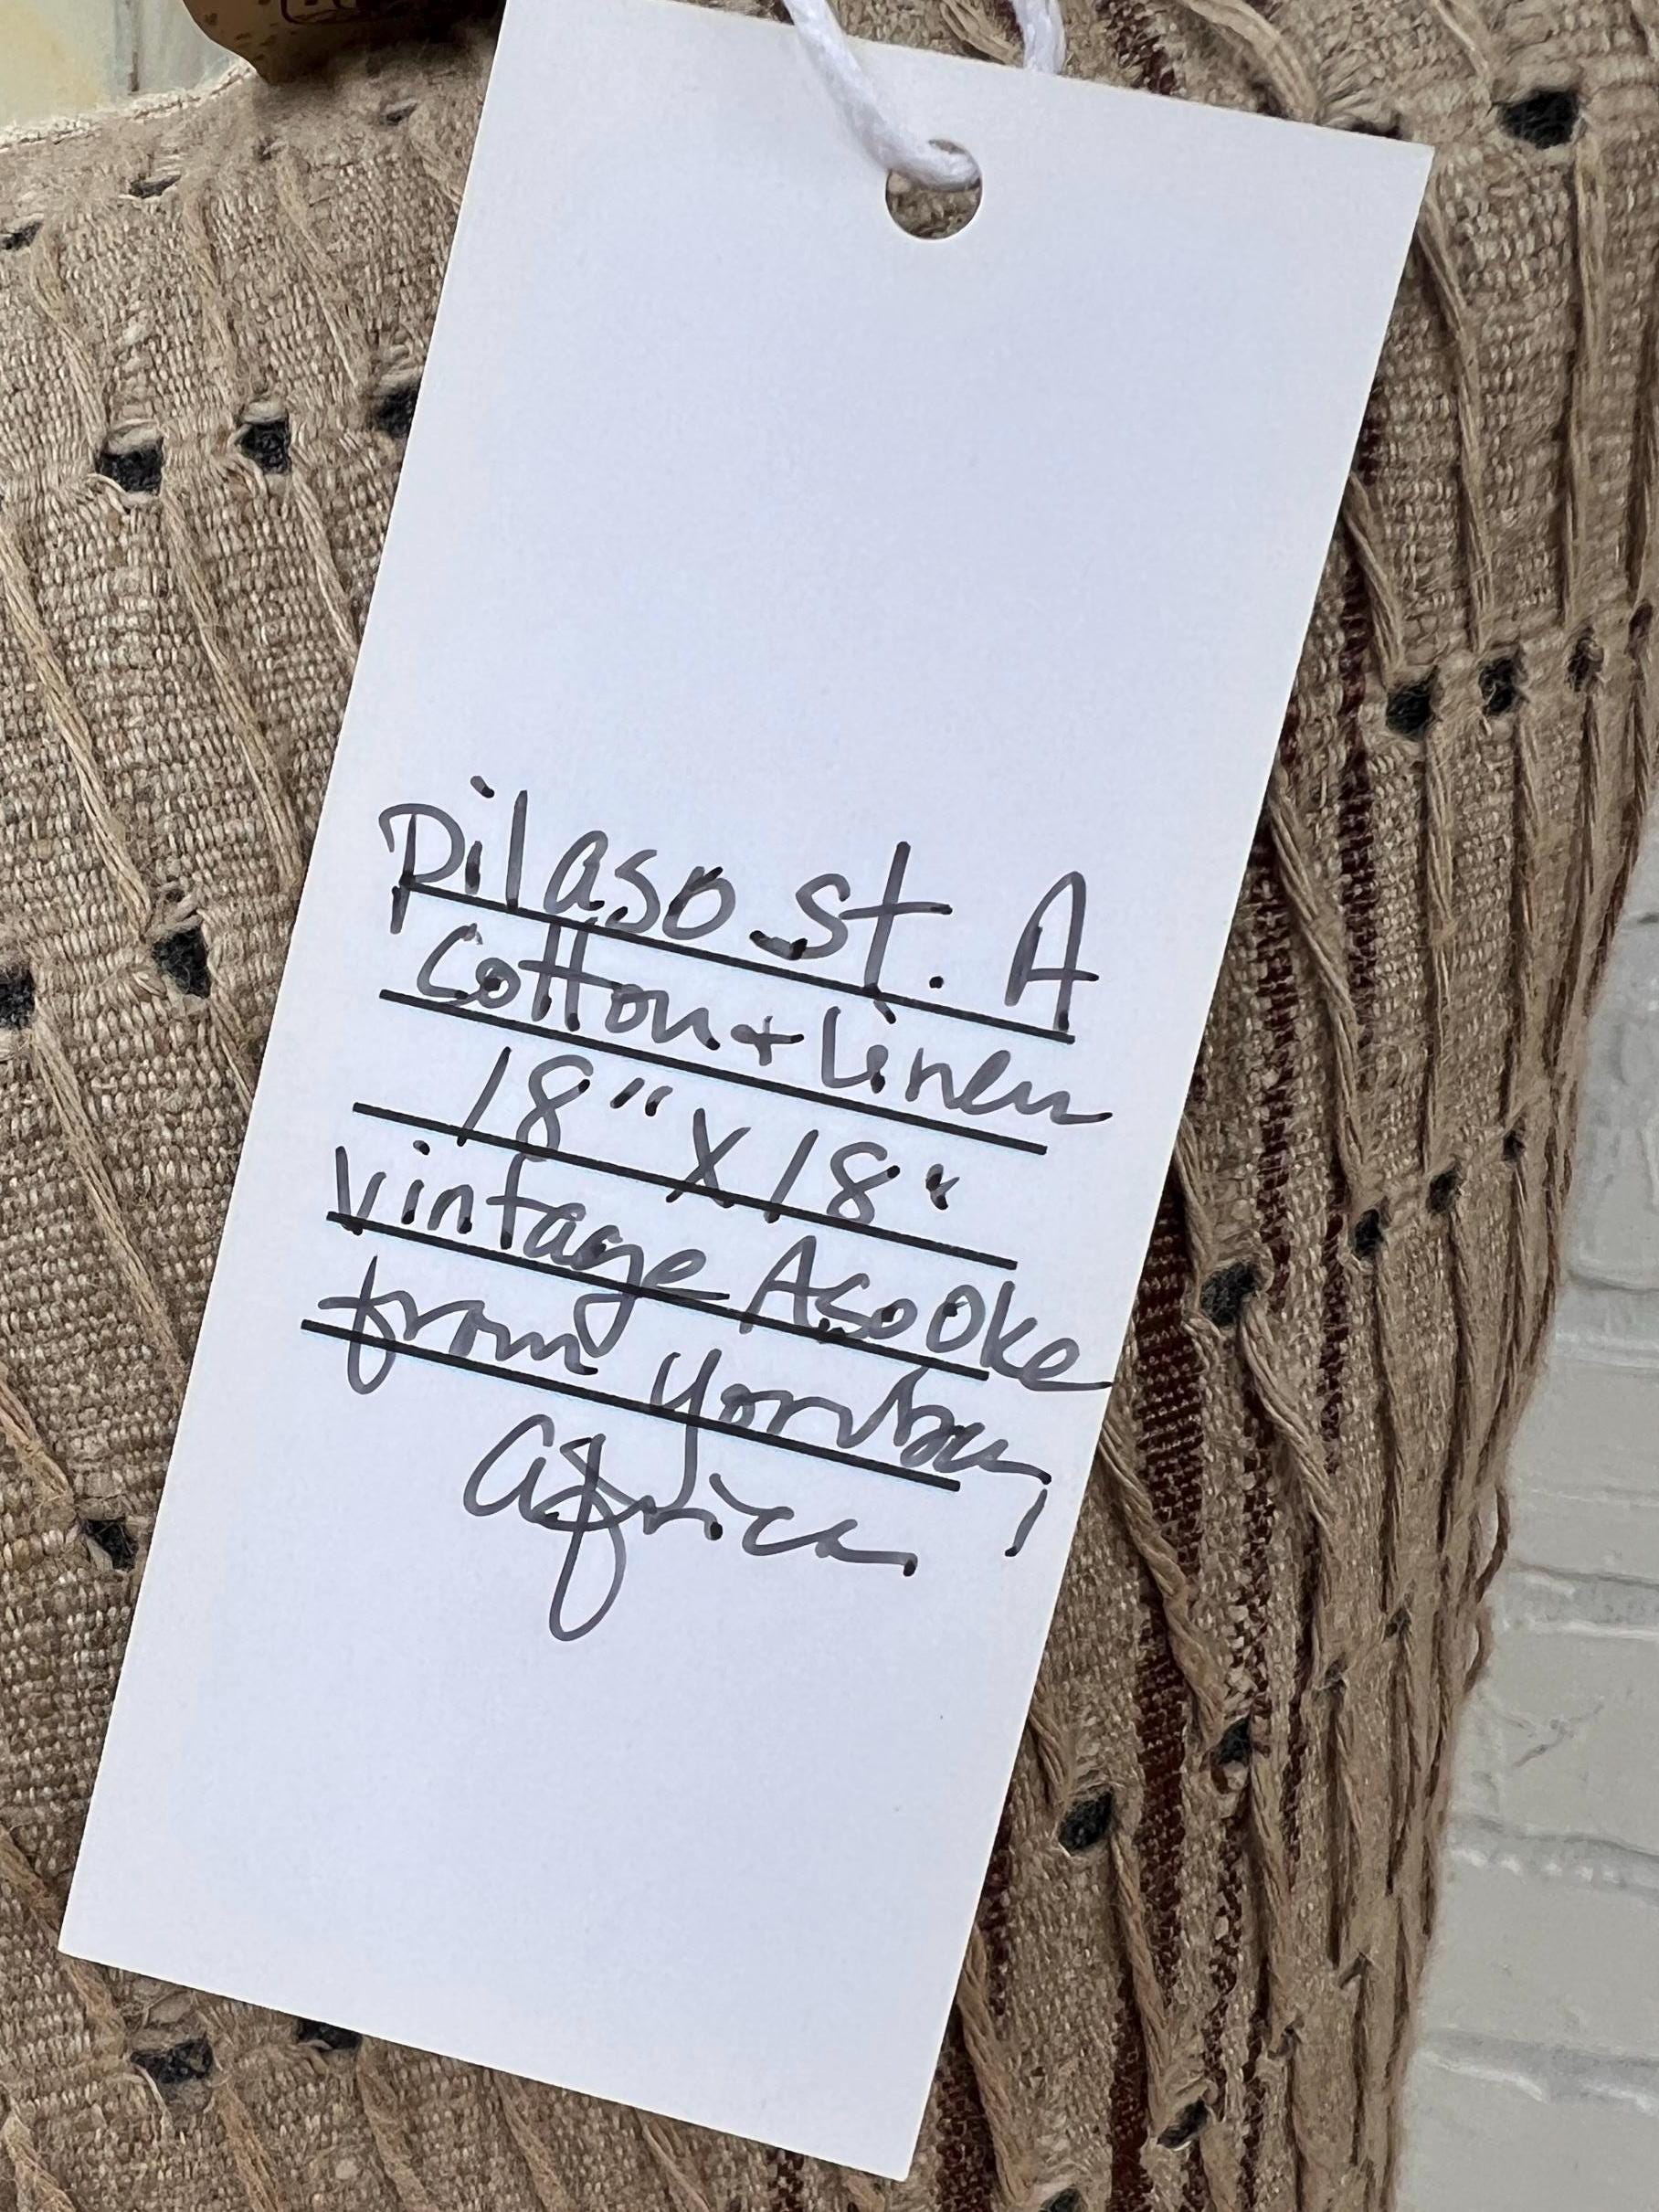 pilaso_st. A
Cotton + Linen
18" X 18"
Vintage Aso Oke
from Yoruba,
Africa